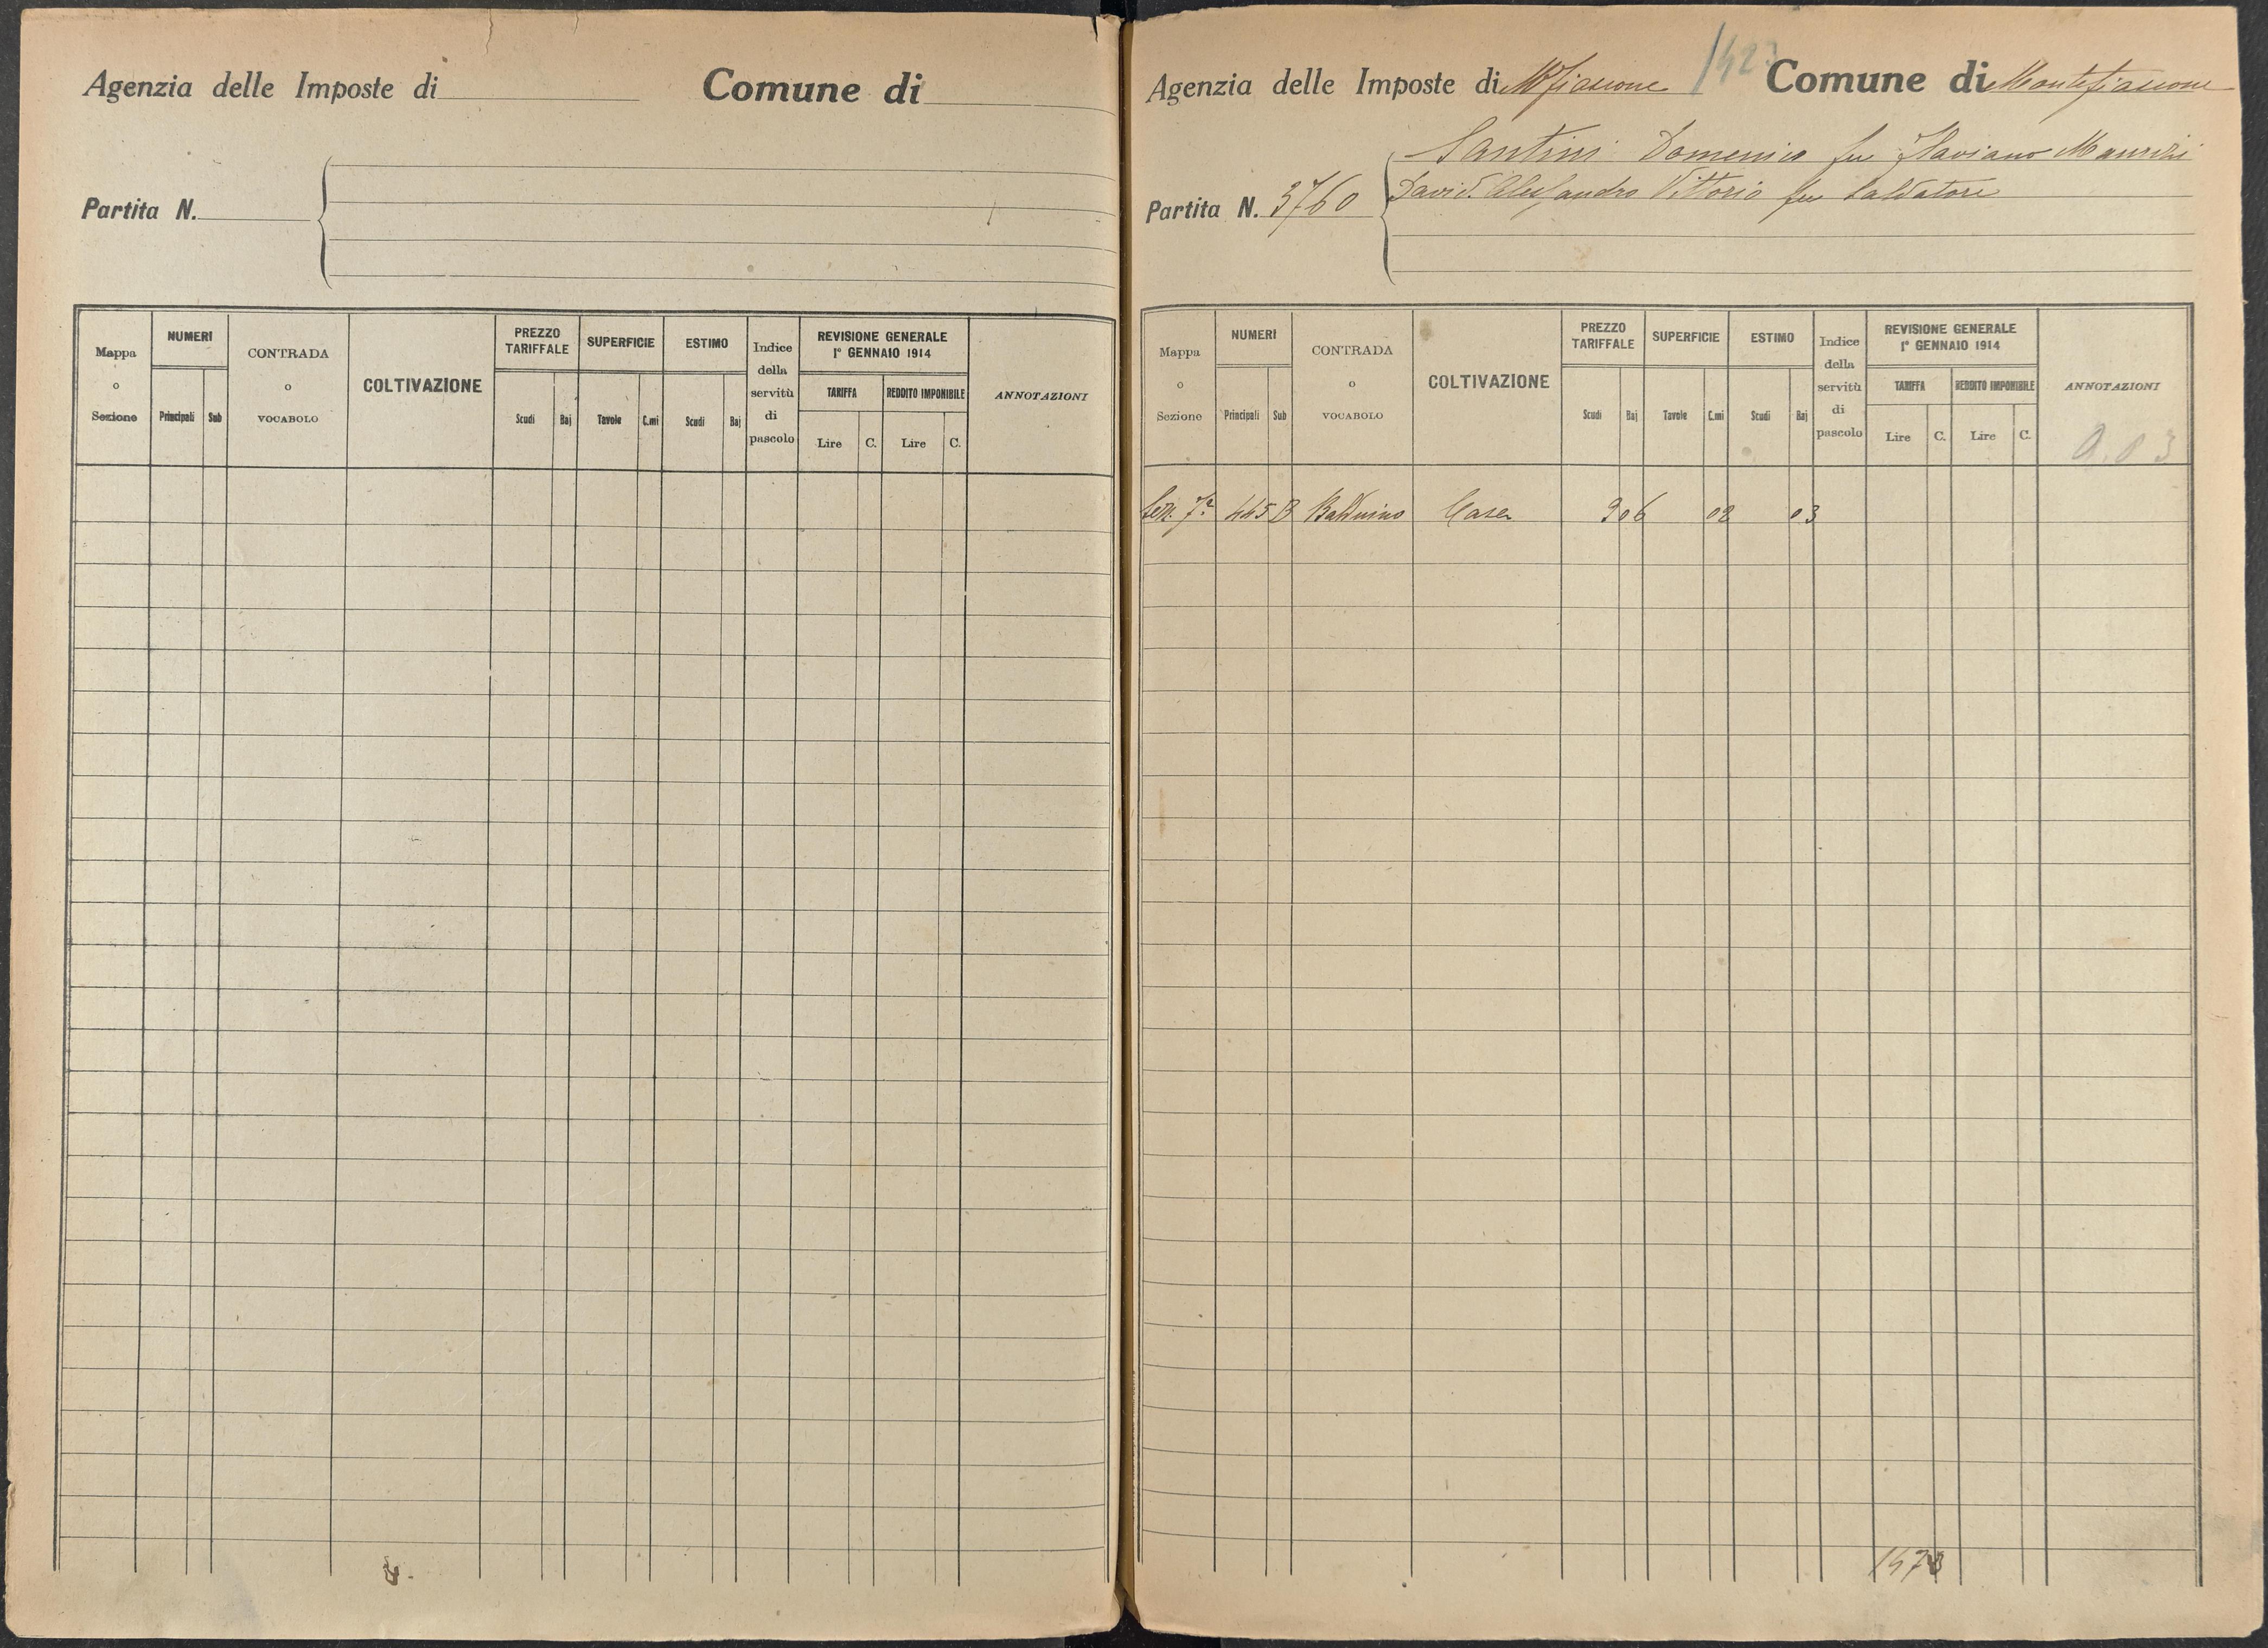 Agenzia delle Imposte di
Comune di
Partita N.
Mappa o Sezione
NUMERI
Principali
Sub
CONTRADA o VOCABOLO
COLTIVAZIONE
PREZZO TARIFFALE
Scudi
Baj
SUPERFICIE
Tavole
C.mi
ESTIMO
Scudi
Baj
Indice della servitù di pascolo
REVISIONE GENERALE
1° GENNAIO 1914
TARIFFA
Lire
C.
REDDITO IMPONIBILE
Lire
C.
ANNOTAZIONI
Agenzia delle Imposte di Mfiascone
Comune di Montefiascone
Santini Domenico fu Flaviano Maurizi
David. Alessandro Vittorio fu Salvatore
Partita N. 3760
Mappa o Sezione
NUMERI
Principali
Sub
CONTRADA o VOCABOLO
COLTIVAZIONE
PREZZO TARIFFALE
Scudi
Baj
SUPERFICIE
Tavole
C.mi
ESTIMO
Scudi
Baj
Indice della servitù di pascolo
REVISIONE GENERALE
1° GENNAIO 1914
TARIFFA
Lire
C.
REDDITO IMPONIBILE
Lire
C.
ANNOTAZIONI
0.03
Sez. 7ª 445 B Balduino Casa 306 02 03